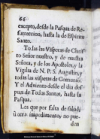 66
excepto, desde la Pasqua de Re-
surreccion, hasta la de Espiritu
Santo.
Todas las Vísperas de Christo
Señor nuestro, y de nuestra
Señora, y de los Apostoles, y la
Vigilia de N. P. S. Augustin, y
todas las vísperas de Comunion.
Y el Adviento desde el dia des-
pues de Todos Santos, hasta la
Pasqua.
Los que por falta de salud,
u otro impedimento no pue-